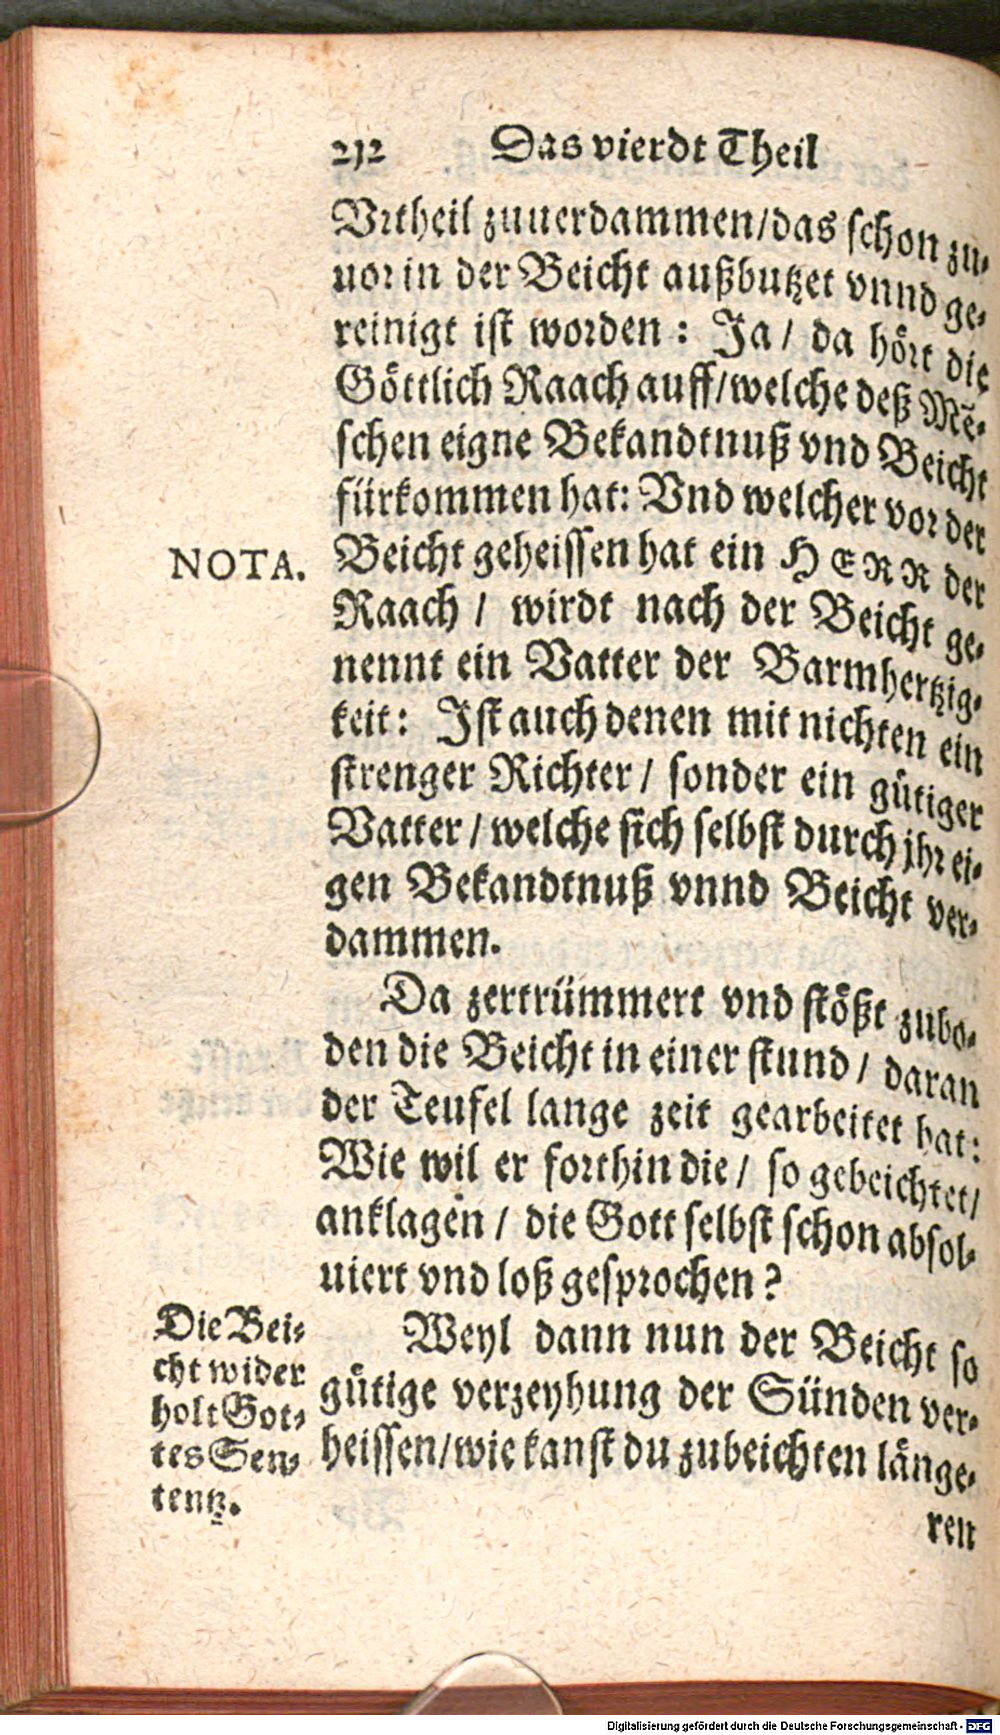 212 Das vierdt Theil
Vrtheil zuuerdammen/das schon zu-
uor in der Beicht außbutzet vnnd ge-
reinigt ist worden: Ja/ da hört die
Göttlich Raach auff/welche deß Mẽ-
schen eigne Bekandtnuß vnd Beicht
fürkommen hat: Vnd welcher vor der
NOTA.
Beicht geheissen hat ein HERR der
Raach / wirdt nach der Beicht ge-
nennt ein Vatter der Barmhertzig-
keit: Ist auch denen mit nichten ein
strenger Richter / sonder ein gütiger
Vatter / welche sich selbst durch jhr ei-
gen Bekandtnuß vnnd Beicht ver-
dammen.
Da zertrümmert vnd stößt zubo-
den die Beicht in einer stund / daran
der Teufel lange zeit gearbeitet hat:
Wie wil er forthin die / so gebeichtet/
anklagen / die Gott selbst schon absol-
uiert vnd loß gesprochen?
Die Bei-
cht wider
holt Got-
tes Sen-
tentz.
Weyl dann nun der Beicht so
gütige verzeyhung der Sünden ver-
heissen/wie kanst du zubeichten länge-
ren
Digitalisierung gefördert durch die Deutsche Forschungsgemeinschaft - DFG